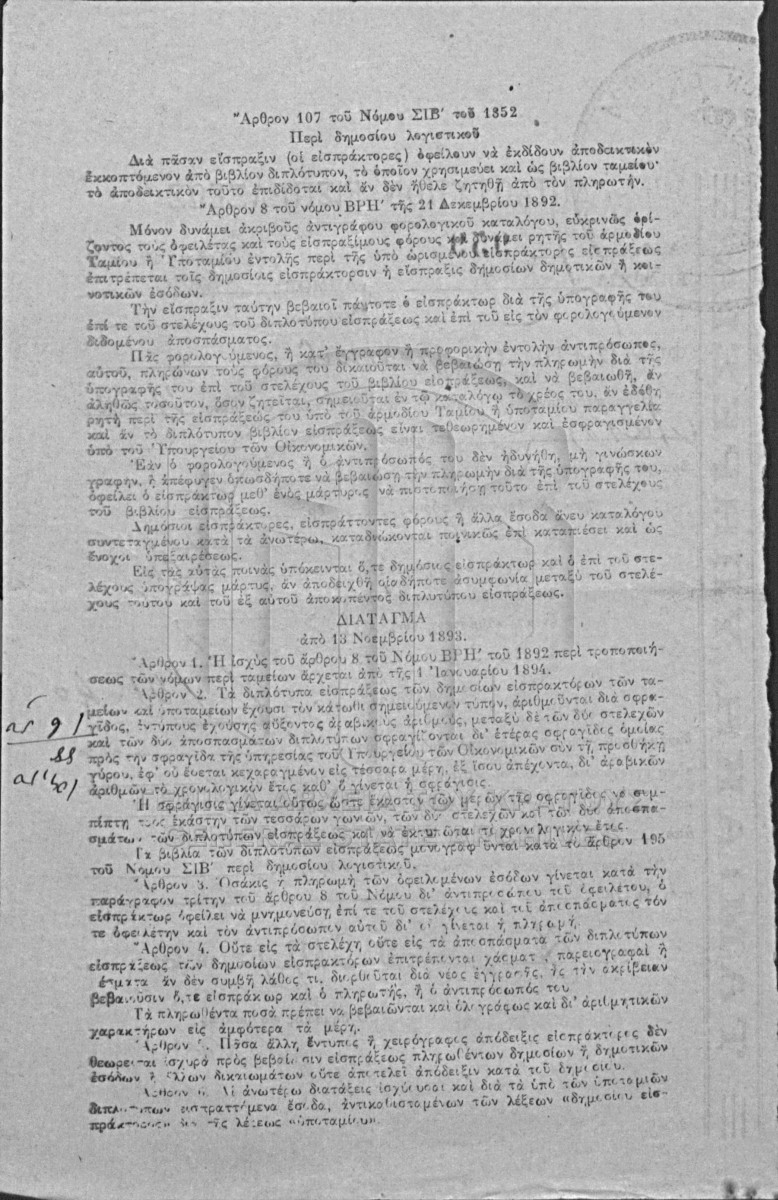 Ἄρθρον 107 τοῦ Νόμου ΣΙΒ′ τοῦ 1852
Περὶ δημοσίου λογιστικοῦ
Διὰ πᾶσαν εἴσπραξιν (οἱ εἰσπράκτορες) ὀφείλουν νὰ ἐκδίδουν ἀποδεικτικὸν
ἐκκοπτόμενον ἀπὸ βιβλίον διπλότυπον, τὸ ὁποῖον χρησιμεύει καὶ ὡς βιβλίον ταμείου·
τὸ ἀποδεικτικὸν τοῦτο ἐπιδίδοται καὶ ἂν δὲν ἤθελε ζητηθῇ ἀπὸ τὸν πληρωτήν.
Ἄρθρον 8 τοῦ νόμου ΒΡΗ′ τῆς 21 Δεκεμβρίου 1892.
Μόνον δυνάμει ἀκριβοῦς ἀντιγράφου φορολογικοῦ καταλόγου, εὐκρινῶς ὁρί-
ζοντος τοὺς ὀφειλέτας καὶ τοὺς εἰσπραξίμους φόρους καὶ δυνάμει ρητῆς τοῦ ἁρμοδίου
Ταμίου ἢ Ὑποταμίου ἐντολῆς περὶ τῆς ὑπὸ ὡρισμένου εἰσπράκτορος εἰσπράξεως
ἐπιτρέπεται τοῖς δημοσίοις εἰσπράκτορσιν ἡ εἴσπραξις δημοσίων δημοτικῶν ἢ κοι-
νοτικῶν ἐσόδων.
Τὴν εἴσπραξιν ταύτην βεβαιοῖ πάντοτε ὁ εἰσπράκτωρ διὰ τῆς ὑπογραφῆς του
ἐπί τε τοῦ στελέχους τοῦ διπλοτύπου εἰσπράξεως καὶ ἐπὶ τοῦ εἰς τὸν φορολογούμενον
διδομένου ἀποσπάσματος.
Πᾶς φορολογούμενος, ἢ κατ' ἔγγραφον ἢ προφορικὴν ἐντολὴν ἀντιπρόσωπος,
αὐτοῦ, πληρώνων τοὺς φόρους του δικαιοῦται νὰ βεβαιώσῃ τὴν πληρωμὴν διὰ τῆς
ὑπογραφῆς του ἐπὶ τοῦ στελέχους τοῦ βιβλίου εἰσπράξεως, καὶ νὰ βεβαιωθῇ, ἂν
ἀληθῶς τοσοῦτον, ὅσον ζητεῖται, σημειοῦται ἐν τῷ καταλόγῳ τὸ χρέος του, ἂν ἐδόθη
ρητὴ περὶ τῆς εἰσπράξεώς του ὑπὸ τοῦ ἁρμοδίου Ταμίου ἢ ὑποταμίου παραγγελία
καὶ ἂν τὸ διπλότυπον βιβλίον εἰσπράξεως εἶναι τεθεωρημένον καὶ ἐσφραγισμένον
ὑπὸ τοῦ Ὑπουργείου τῶν Οἰκονομικῶν.
Ἐὰν ὁ φορολογούμενος ἢ ὁ ἀντιπρόσωπός του δὲν ἠδυνήθη, μὴ γινώσκων
γραφήν, ἢ ἀπέφυγεν ὁπωσδήποτε νὰ βεβαιώσῃ τὴν πληρωμὴν διὰ τῆς ὑπογραφῆς του,
ὀφείλει ὁ εἰσπράκτωρ μεθ' ἑνὸς μάρτυρος νὰ πιστοποιήσῃ τοῦτο ἐπὶ τοῦ στελέχους
τοῦ βιβλίου εἰσπράξεως.
Δημόσιοι εἰσπράκτορες, εἰσπράττοντες φόρους ἢ ἄλλα ἔσοδα ἄνευ καταλόγου
συντεταγμένου κατὰ τὰ ἀνωτέρω, καταδιώκονται ποινικῶς ἐπὶ καταπιέσει καὶ ὡς
ἔνοχοι ὑπεξαιρέσεως.
Εἰς τὰς αὐτὰς ποινὰς ὑπόκεινται ὅ,τε δημόσιος εἰσπράκτωρ καὶ ὁ ἐπὶ τοῦ στε-
λέχους ὑπογράψας μάρτυς, ἂν ἀποδειχθῇ οἱαδήποτε ἀσυμφωνία μεταξὺ τοῦ στελέ-
χους τούτου καὶ τοῦ ἐξ αὐτοῦ ἀποκοπέντος διπλοτύπου εἰσπράξεως.
ΔΙΑΤΑΓΜΑ
ἀπὸ 13 Νοεμβρίου 1893.
Ἄρθρον 1. Ἡ ἰσχὺς τοῦ ἄρθρου 8 τοῦ Νόμου ΒΡΗ′ τοῦ 1892 περὶ τροποποιή-
σεως τῶν νόμων περὶ ταμείων ἄρχεται ἀπὸ τῆς 1 Ἰανουαρίου 1894.
Ἄρθρον 2. Τὰ διπλότυπα εἰσπράξεως τῶν δημοσίων εἰσπρακτόρων τῶν τα-
μείων καὶ ὑποταμείων ἔχουσι τὸν κάτωθι σημειούμενον τύπον, ἀριθμοῦνται διὰ σφρα-
γῖδος, ἐντύπους ἐχούσης αὔξοντας ἀραβικοὺς ἀριθμούς, μεταξὺ δὲ τῶν δύο στελεχῶν
καὶ τῶν δύο ἀποσπασμάτων διπλοτύπων σφραγίζονται δι' ἑτέρας σφραγῖδος ὁμοίας
πρὸς τὴν σφραγῖδα τῆς ὑπηρεσίας τοῦ Ὑπουργείου τῶν Οἰκονομικῶν σὺν τῇ προσθήκῃ
γύρου, ἐφ' οὗ ἔσεται κεχαραγμένον εἰς τέσσαρα μέρη, ἐξ ἴσου ἀπέχοντα, δι' ἀραβικῶν
ἀριθμῶν τὸ χρονολογικὸν ἔτος καθ' ὃ γίνεται ἡ σφράγισις.
Ἡ σφράγισις γίνεται οὕτως ὥστε ἕκαστον τῶν μερῶν τῆς σφραγῖδος νὰ συμ-
πίπτῃ πρὸς ἑκάστην τῶν τεσσάρων γωνιῶν, τῶν δύο στελεχῶν καὶ τῶν δύο ἀποσπα-
σμάτων τῶν διπλοτύπων εἰσπράξεως καὶ νὰ ἐκτυπῶται τὸ χρονολογικὸν ἔτος.
Τὰ βιβλία τῶν διπλοτύπων εἰσπράξεως μονογραφοῦνται κατὰ τὸ ἄρθρον 195
τοῦ Νόμου ΣΙΒ′ περὶ δημοσίου λογιστικοῦ.
Ἄρθρον 3. Ὁσάκις ἡ πληρωμὴ τῶν ὀφειλομένων ἐσόδων γίνεται κατὰ τὴν
παράγραφον τρίτην τοῦ ἄρθρου 8 τοῦ Νόμου δι' ἀντιπροσώπου τοῦ ὀφειλέτου, ὁ
εἰσπράκτωρ ὀφείλει νὰ μνημονεύσῃ ἐπί τε τοῦ στελέχους καὶ τοῦ ἀποσπάσματος τόν
τε ὀφειλέτην καὶ τὸν ἀντιπρόσωπον αὐτοῦ δι' οὗ γίνεται ἡ πληρωμή.
Ἄρθρον 4. Οὔτε εἰς τὰ στελέχη οὔτε εἰς τὰ ἀποσπάσματα τῶν διπλοτύπων
εἰσπράξεως τῶν δημοσίων εἰσπρακτόρων ἐπιτρέπονται χάσματα, παρεγγραφαὶ ἢ
ξέσματα ἂν δὲν συμβῇ λάθος τι, διορθοῦται διὰ νέας ἐγγραφῆς, ἧς τὴν ἀκρίβειαν
βεβαιοῦσιν ὅ,τε εἰσπράκωρ καὶ ὁ πληρωτής, ἢ ὁ ἀντιπρόσωπός του
Τὰ πληρωθέντα ποσὰ πρέπει νὰ βεβαιῶνται καὶ ὁλογράφως καὶ δι' ἀριθμητικῶν
χαρακτήρων εἰς ἀμφότερα τὰ μέρη.
Ἄρθρον 5. Πᾶσα ἄλλη ἔντυπος ἢ χειρόγραφος ἀπόδειξις εἰσπράκτορος δὲν
θεωρεῖται ἰσχυρὰ πρὸς βεβαίωσιν εἰσπράξεως πληρωθέντων δημοσίων ἢ δημοτικῶν
ἐσόδων ἢ ἄλλων δικαιωμάτων οὔτε ἀποτελεῖ ἀπόδειξιν κατὰ τοῦ δημοσίου.
Ἄρθρον 6. Αἱ ἀνωτέρω διατάξεις ἰσχύουσι καὶ διὰ τὰ ὑπὸ τῶν ὑποταμιῶν
διπλοτύπων εἰσπραττόμενα ἔσοδα, ἀντικαθισταμένων τῶν λέξεων «δημοσίου εἰσ-
πράκτορος» διὰ τῆς λέξεως «ὑποταμίου».